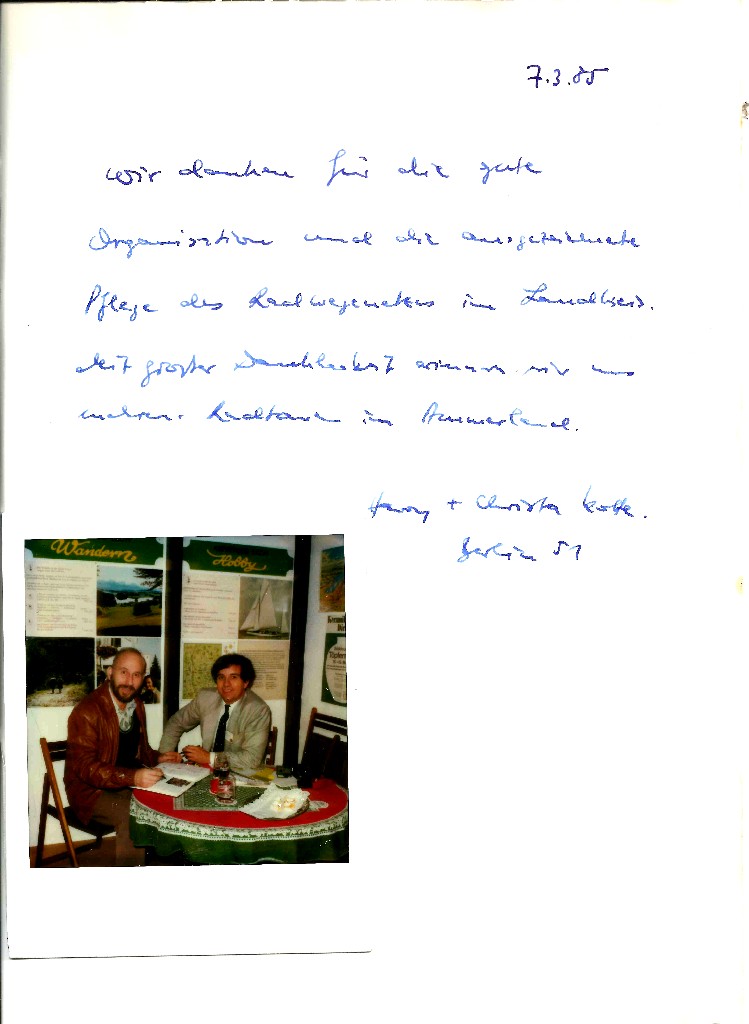 7.3.85
Wir danken für die gute
Organisation und die ausgezeichnete
Pflege des Radwegenetzes im Landkreis.
Mit großer Dankbarkeit erinnern wir uns
Radtouren im Ammerland.
+ Christa
Berlin 51
Wandern
Hobby